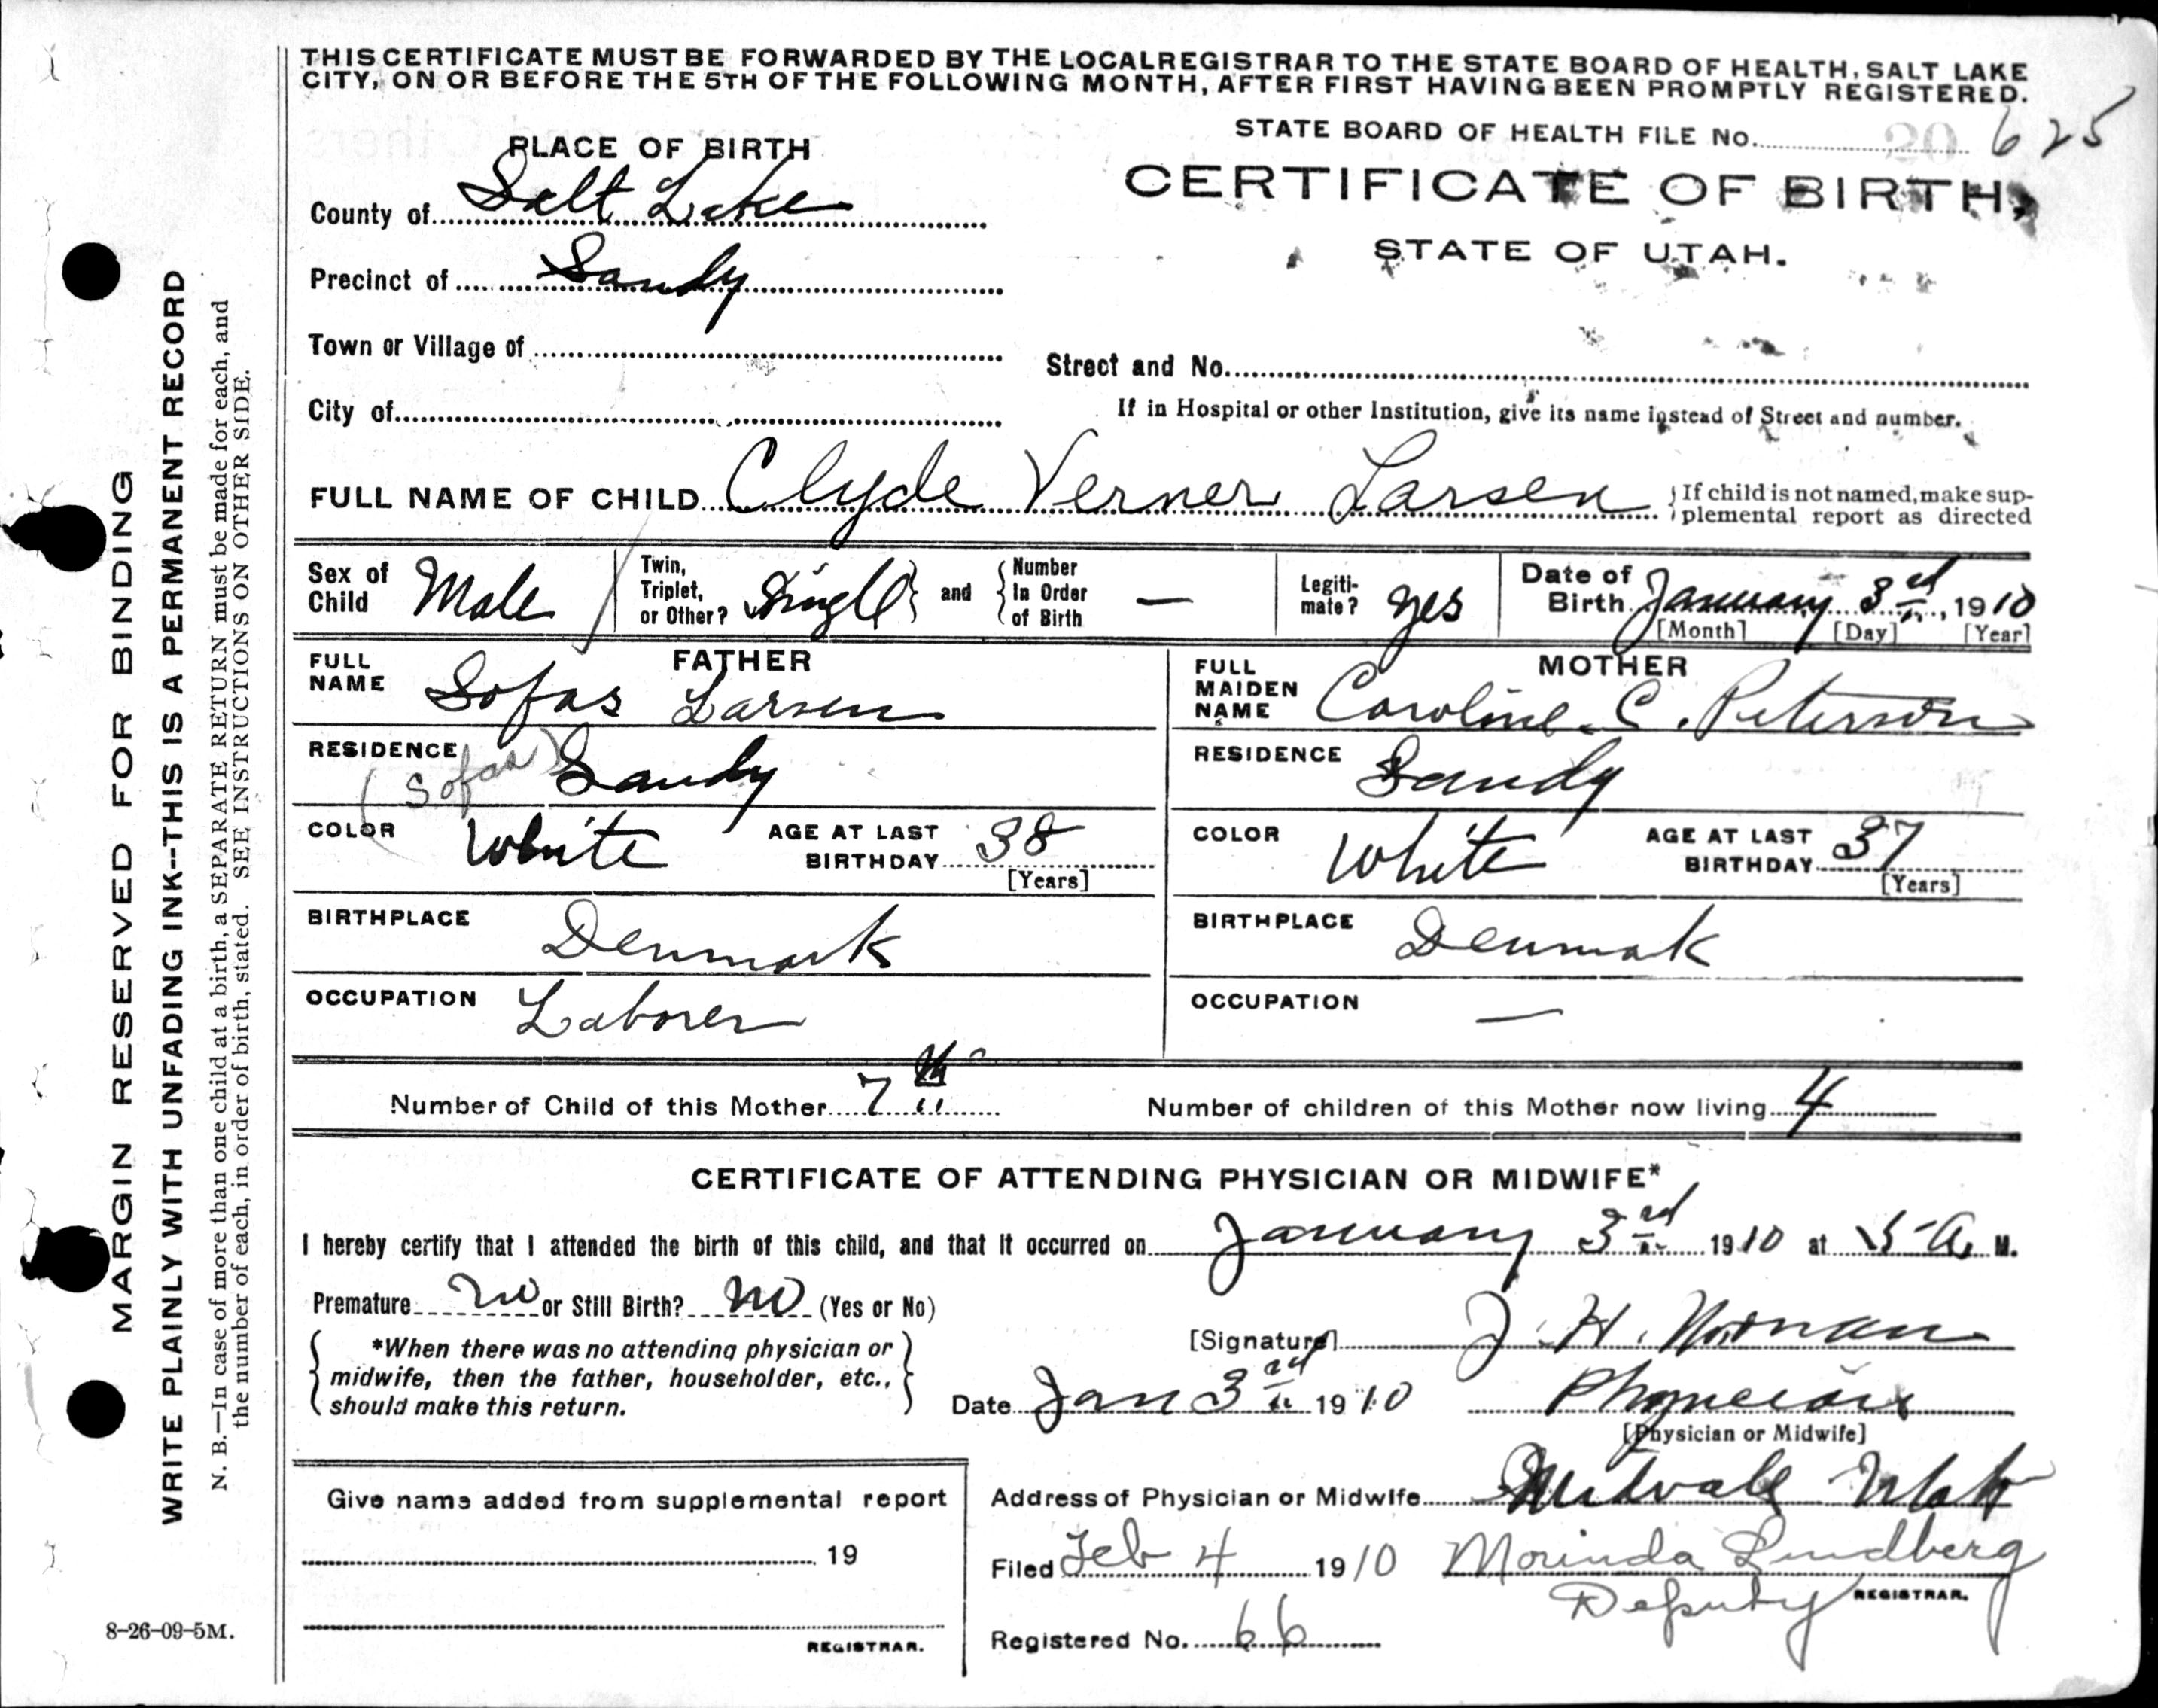 THIS CERTIFICATE MUST BE FORWARDED BY THE LOCAL REGISTRAR TO THE STATE BOARD OF HEALTH, SALT LAKE
CITY, ON OR BEFORE THE 5TH OF THE FOLLOWING MONTH, AFTER FIRST HAVING BEEN PROMPTLY REGISTERED.
STATE BOARD OF HEALTH FILE No. 20 625
PLACE OF BIRTH
CERTIFICATE OF BIRTH,
STATE OF UTAH.
County of Salt Lake
Precinct of Sandy
Town or Village of
Street and No.
City of
If in Hospital or other Institution, give its name instead of Street and number.
FULL NAME OF CHILD Clyde Verner Larsen
If child is not named, make sup-
plemental report as directed
Sex of Child Male
Twin, Triplet, or Other? Single and
Number In Order of Birth —
Legiti-mate? yes
Date of Birth January 3rd, 1910
[Month] [Day] [Year]
FATHER
FULL NAME Sofas Larsen
RESIDENCE (Sofas) Sandy
COLOR White AGE AT LAST BIRTHDAY 38
[Years]
BIRTHPLACE Denmark
OCCUPATION Laborer
MOTHER
FULL MAIDEN NAME Caroline C. Peterson
RESIDENCE Sandy
COLOR White AGE AT LAST BIRTHDAY 37
[Years]
BIRTHPLACE Denmak
OCCUPATION —
Number of Child of this Mother 7th
Number of children of this Mother now living 4
CERTIFICATE OF ATTENDING PHYSICIAN OR MIDWIFE*
I hereby certify that I attended the birth of this child, and that it occurred on January 3rd 1910 at 5 A. M.
Premature no or Still Birth? no (Yes or No)
*When there was no attending physician or
midwife, then the father, householder, etc.,
should make this return.
[Signature] J. H. Noonan
Date Jan 3rd 1910 Physician
[Physician or Midwife]
Address of Physician or Midwife Midvale Utah
Filed Feb 4 1910 Morinda Lindberg
Deputy REGISTRAR.
Registered No. 66
Give name added from supplemental report
19
REGISTRAR.
8-26-09-5M.
MARGIN RESERVED FOR BINDING
WRITE PLAINLY WITH UNFADING INK--THIS IS A PERMANENT RECORD
N. B.—In case of more than one child at a birth, a SEPARATE RETURN must be made for each, and
the number of each, in order of birth, stated. SEE INSTRUCTIONS ON OTHER SIDE.